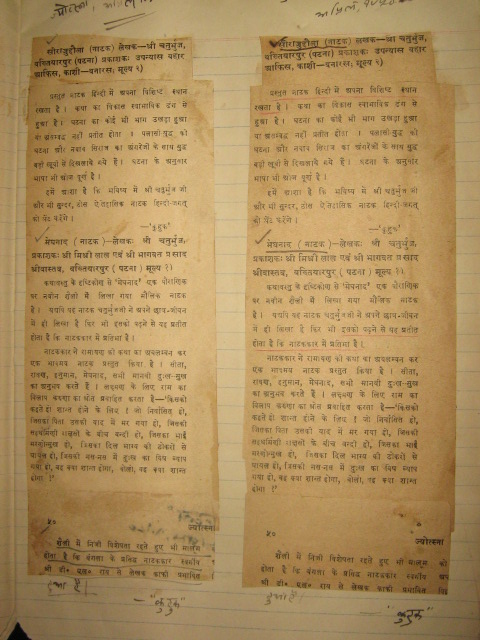 ज्योत्स्ना,
सीराजुद्दौला (नाटक) लेखक—श्री चतुर्भुज,
बख्तियारपुर (पटना) प्रकाशक: उपन्यास बहार
आफिस, काशी—बनारस; मूल्य २)
प्रस्तुत नाटक हिन्दी में अपना विशिष्ट स्थान
रखता है । कथा का विकास स्वाभाविक ढंग से
हुआ है । घटना का कोई भी भाग उखड़ा हुआ
या क्षतबद्ध नहीं प्रतीत होता । पलासी-युद्ध की
घटना और नवाब सिराज का अंगरेजों के साथ युद्ध
बड़ी खूबी से दिखलाये गये हैं । घटना के अनुसार
भाषा भी ओज पूर्ण है ।
हमें आशा है कि भविष्य में श्री चतुर्भुज जी
और भी सुन्दर, ठोस ऐतिहासिक नाटक हिन्दी-जगत्
को भेंट करेंगे ।
—'कुटुक'
मेघनाद (नाटक)—लेखक श्री चतुर्भुज,
प्रकाशक: श्री मिश्री लाल एवं श्री भागवत प्रसाद
श्रीवास्तव, बख्तियारपुर (पटना) मूल्य १)
कथावस्तु के दृष्टिकोण से 'मेघनाद' एक पौराणिक
पर नवीन शैली में लिखा गया मौलिक नाटक
है । यद्यपि यह नाटक चतुर्भुजजी ने अपने छात्र-जीवन
में ही लिखा है फिर भी इसको पढ़ने से यह प्रतीत
होता है कि नाटककार में प्रतिभा है ।
नाटककार ने रामायण की कथा का अवलम्बन कर
एक भावमय नाटक प्रस्तुत किया है । सीता,
रावण, हनुमान, मेघनाद, सभी मानवी दुःख-सुख
का अनुभव करते हैं । लक्ष्मण के लिए राम का
विलाप करुणा का श्रोत प्रवाहित करता है—'किसको
कहते हो शान्त होने के लिए ! जो निर्वासित हो,
जिसका पिता उसकी याद में मर गया हो, जिसकी
सहधर्मिणी राक्षसों के बीच बन्दी हो, जिसका भाई
मरणोन्मुख हो, जिसका दिल भाग्य की ठोकरों से
घायल हो, जिसकी नस-नस में दुःख का विष व्याप
गया हो, वह क्या शान्त होगा, बोलो, वह क्या शान्त
होगा !'
५०
ज्योत्स्ना
शैली में निजी विशेषता रहते हुए भी मालूम
होता है कि बंगला के प्रसिद्ध नाटककार स्वर्गीय
श्री डी० एल० राय से लेखक काफी प्रभावित
हुआ है।
—"कुटुक"
सीराजुद्दौला (नाटक) लेखक—श्री चतुर्भुज,
बख्तियारपुर (पटना) प्रकाशक: उपन्यास बहार
आफिस, काशी—बनारस; मूल्य २)
प्रस्तुत नाटक हिन्दी में अपना विशिष्ट स्थान
रखता है । कथा का विकास स्वाभाविक ढंग से
हुआ है । घटना का कोई भी भाग उखड़ा हुआ
या क्षतबद्ध नहीं प्रतीत होता । पलासी-युद्ध की
घटना और नवाब सिराज का अंगरेजों के साथ युद्ध
बड़ी खूबी से दिखलाये गये हैं । घटना के अनुसार
भाषा भी ओज पूर्ण है ।
हमें आशा है कि भविष्य में श्री चतुर्भुज जी
और भी सुन्दर, ठोस ऐतिहासिक नाटक हिन्दी-जगत्
को भेंट करेंगे ।
—'कुटुक'
मेघनाद (नाटक)—लेखक: श्री चतुर्भुज,
प्रकाशक: श्री मिश्री लाल एवं श्री भागवत प्रसाद
श्रीवास्तव, बख्तियारपुर (पटना) मूल्य १)
कथावस्तु के दृष्टिकोण से 'मेघनाद' एक पौराणिक
पर नवीन शैली में लिखा गया मौलिक नाटक
है । यद्यपि यह नाटक चतुर्भुजजी ने अपने छात्र-जीवन
में ही लिखा है फिर भी इसको पढ़ने से यह प्रतीत
होता है कि नाटककार में प्रतिभा है ।
नाटककार ने रामायण की कथा का अवलम्बन कर
एक भावमय नाटक प्रस्तुत किया है । सीता,
रावण, हनुमान, मेघनाद, सभी मानवी दुःख-सुख
का अनुभव करते हैं । लक्ष्मण के लिए राम का
विलाप करुणा का श्रोत प्रवाहित करता है—'किसको
कहते हो शान्त होने के लिए ! जो निर्वासित हो,
जिसका पिता उसकी याद में मर गया हो, जिसकी
सहधर्मिणी राक्षसों के बीच बन्दी हो, जिसका भाई
मरणोन्मुख हो, जिसका दिल भाग्य की ठोकरों से
घायल हो, जिसकी नस-नस में दुःख का विष व्याप
गया हो, वह क्या शान्त होगा, बोलो, वह क्या शान्त
होगा !'
५०
ज्योत्स्ना
शैली में निजी विशेषता रहते हुए भी मालूम
होता है कि बंगला के प्रसिद्ध नाटककार
श्री डी० एल० राय से लेखक काफी प्रभावित
हुआ है।
"कुटुक"